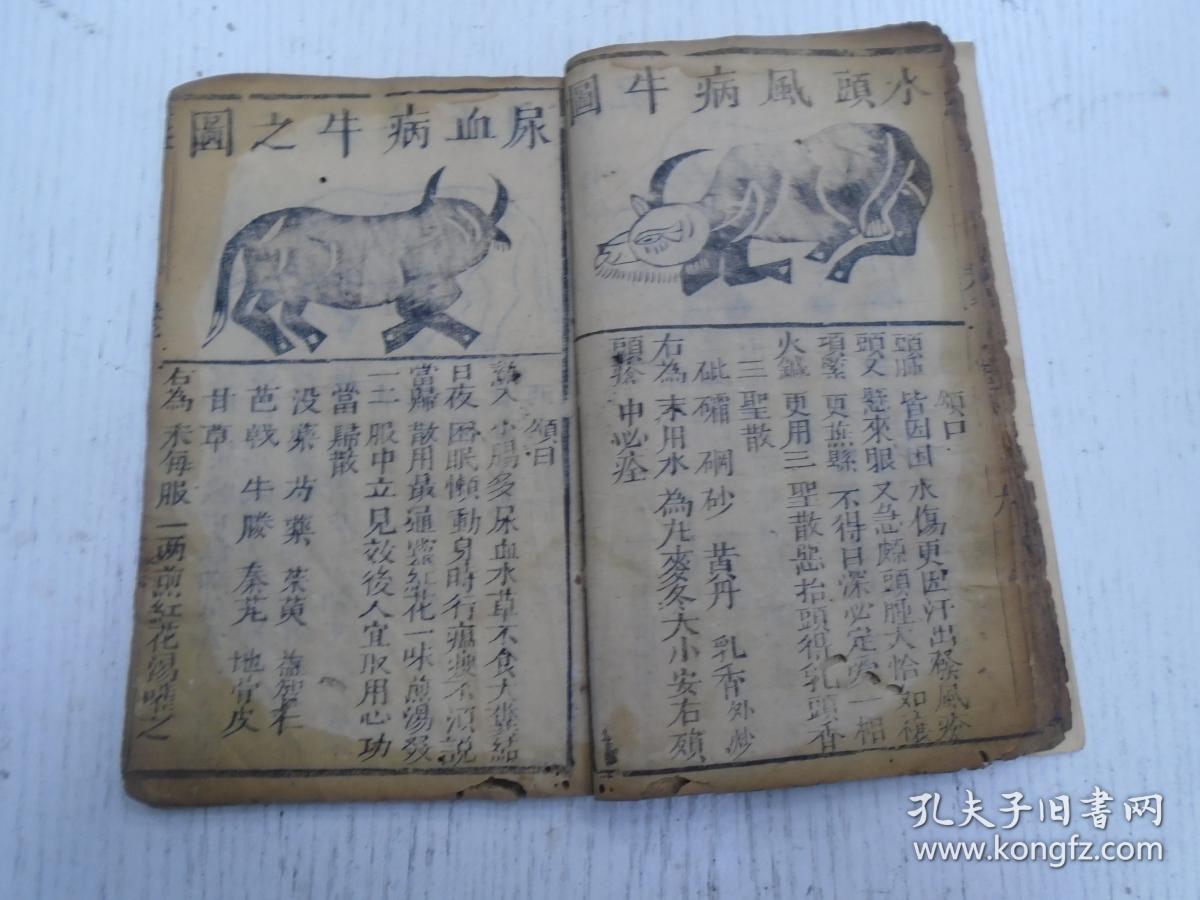 水頭風病牛圖
頌曰
頭腫皆因困水傷更因汗出發風
頭又懸來眼又急頭腫大恰如
項緊更蕪縣不得目深必定一相
火鍼更用三聖散慾抬頭得乳頭香
三聖散
砒礵 硇砂 黄丹 乳香
右為末用水為丸麥冬大小安右
頭 中必痊
尿血病牛之圖
頌曰
熱入小腸多尿血水草不食大糞結
日夜困眠懶動身時行瘟瘦不須說
當歸散用最通靈紅花一味煎湯發
一二服中立見效後人宜取用心功
當歸散
没藥 芍藥 茱萸 益智仁
芭戟 牛膝 秦艽 地骨皮
甘草
右為末每服一两煎紅花湯嚾之
孔夫子旧书网
www.kongfz.com